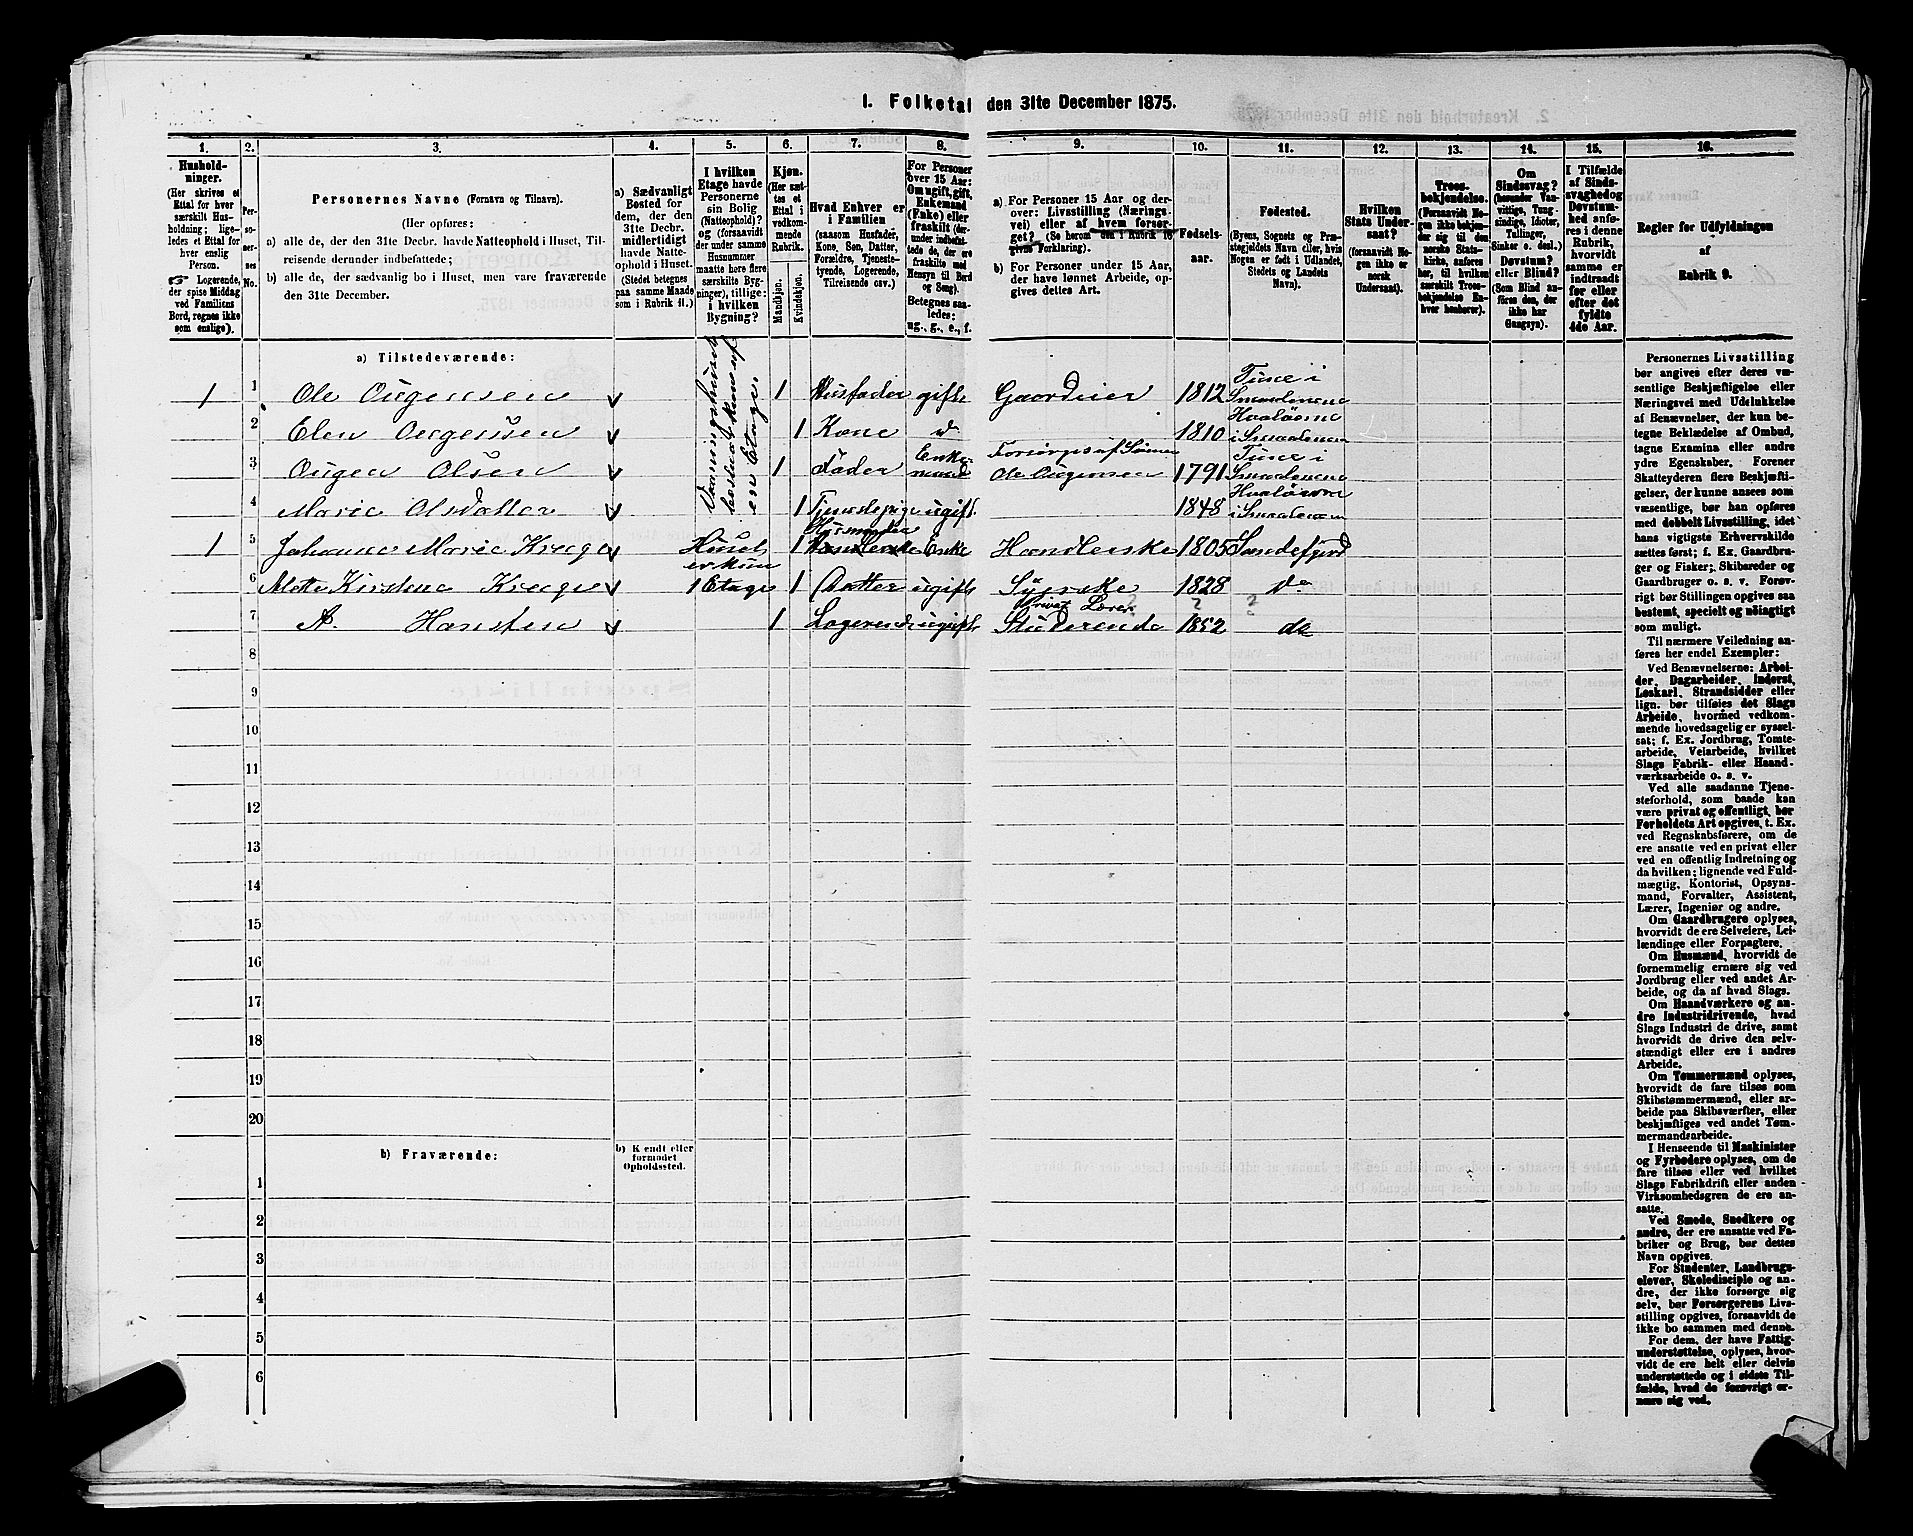 1. Folketal den 31te December 1875.
1. 2. 3. 4. 5. 6. 7. 8. 9. 10. 11. 12. 13. 14. 15. 16.
Hushold-
ninger.
(Her skrives et
Ettal for hver
særskilt Hus-
holdning; lige-
ledes et Ettal for
hver enslig
Person.
Logerende,
der spise Middag
ved Familiens
Bord, regnes ikke
som enslige).
Per-
so-
ner-
nes
No.
Personernes Navne (Fornavn og Tilnavn).
(Her opføres:
a) alle de, der den 31te Decbr. havde Natteophold i Huset, Til-
reisende derunder indbefattede;
b) alle de, der sædvanlig bo i Huset, men vare fraværende
den 31te December.
a) Sædvanligt
Bosted for
dem, der den
31te Decbr.
midlertidigt
havde Natte-
ophold i Huset.
(Stedet betegnes
paa samme Maade
som i Rubrik 11.)
I hvilken
Etage havde
Personerne
sin Bolig
(Natteophold)?
og (forsaavidt
der under samme
Husnummer
maatte høre flere
særskilte Byg-
ninger), tillige:
i hvilken
Bygning?
Kjøn.
(Her sæt-
tes et
Ettal i
vedkom-
mende
Rubrik.
Mandkjøn.
Kvindekjøn.
Hvad Enhver er
i Familien
(saasom Husfader,
Kone, Søn, Datter,
Forældre, Tjeneste-
tyende, Logerende,
Tilreisende osv.)
For Personer
over 15 Aar:
Om ugift, gift,
Enkemand
(Enke) eller
fraskilt (der-
under indbefat-
tede de, der ere
fraskilte med
Hensyn til Bord
og Seng).
Betegnes saa-
ledes:
ug., g., e., f.
a) For Personer 15 Aar og der-
over: Livsstilling (Nærings-
vei) eller af hvem forsør-
get? (Se herom den i Rubrik 16
givne Forklaring).
b) For Personer under 15 Aar,
der have lønnet Arbeide, op-
gives dettes Art.
Fødsels-
aar.
Fødested.
(Byens, Sognets og Præ-
stegjeldets Navn eller, hvis
Nogen er født i Udlandet,
Stedets og Landets
Navn).
Hvilken
Stats Under-
saat?
(forsaavidt No-
gen ikke er
norsk
Undersaat).
Troes-
bekjendelse.
(Forsaavidt No-
gen ikke bekjen-
der sig til den
norske Stats-
kirke, anføres
her, til hvilken
særskilt Troes-
bekjendelse En-
hver henhører).
Om
Sindssvag?
(herunder Van-
vittige, Tung-
sindige, Idioter,
Tullinger,
Sinker o. desl.).
Døvstum?
eller Blind?
(Som Blind an-
føres den, der
ikke har
Gangsyn).
I Tilfælde
af Sinds-
svaghed og
Døvstum-
hed anfø-
res i denne
Rubrik,
hvorvidt
samme er
indtraadt
før eller
efter det
fyldte
4de Aar.
Regler for Udfyldningen
af
Rubrik 9.
a) Tilstedeværende:
Vaaningshuset
bestaar kun af
en Etage.
1 1 Ole Ougensen 1 Husfader gift Gaardeier 1812 Tune i Smaalenene
2 Elen Ougensen 1 Kone d 1810 Hvaløerne i Smaalenene
3 Ougen Olsen 1 Fader Enkemand Forsørges af Sønnen Ole Ougensen 1791 Tune i Smaalenene
4 Marie Olsdatter 1 Tjenestepige ugift 1848 Hvaløerne i Smaalenene
1 5 Johanne Marie Kruge Huset er kun 1 Husmoder Enke Handlerske 1805 Sandefjord
6 Mette Kirstine Kruge 1 Etage 1 Datter ugift Syerske 1828 do
7 A. Hansten 1 Logerende ugift Privat Lærer Studerende 1852 ? do ?
8
9
10
11
12
13
14
15
16
17
18
19
20
b) Fraværende:
b) Kjendt eller
formodet
Opholdssted.
1
2
3
4
5
6
Personernes Livsstilling
bør angives efter deres væ-
sentlige Beskjæftigelse eller
Næringsvei med Udelukkelse
af Benævnelser, der kun be-
tegne Beklædelse af Ombud,
tagne Examina eller andre
ydre Egenskaber. Forener
Skatteyderen flere Beskjæf-
tigelser, der kunne ansees som
væsentlige, bør han opføres
med dobbelt Livsstilling, idet
hans vigtigste Erhvervskilde
sættes først; f. Ex. Gaardbru-
ger og Fisker; Skibsreder og
Gaardbruger o. s. v. Forøv-
rigt bør Stillingen opgives saa
bestemt, specielt og nøiagtigt
som muligt.
Til nærmere Veiledning an-
føres her endel Exempler:
Ved Benævnelserne: Arbei-
der, Dagarbeider, Inderst,
Løskarl, Strandsidder eller
lign. bør tilføies det Slags
Arbeide, hvormed vedkom-
mende hovedsagelig er syssel-
sat; f. Ex. Jordbrug, Tomte-
arbeide, Veiarbeide, hvilket
Slags Fabrik- eller Haand-
værksarbeide o. s. v.
Ved alle saadanne Tjene-
steforhold, som baade kan
være privat og offentligt, bør
Forholdets Art opgives, t. Ex.
ved Regnskabsførere, om de
ere ansatte ved en privat eller
ved en offentlig Indretning og
da hvilken; lignende ved Fuld-
mægtig, Kontorist, Opsyns-
mand, Forvalter, Assistent,
Lærer, Ingeniør og andre.
Om Gaardbrugere oplyses,
hvorvidt de ere Selveiere, Lei-
lændinge eller Forpagtere.
Om Husmænd, hvorvidt de
fornemmelig ernære sig ved
Jordbrug eller ved andet Ar-
beide, og da af hvad Slags.
Om Haandværkere og an-
dre Industridrivende, hvad
Slags Industri de drive, samt
hvorvidt de drive den selv-
stændigt eller ere i andres
Arbeide.
Om Tømmermænd oplyses,
hvorvidt de fare tilsøs som
Skibstømmermænd, eller ar-
beide paa Skibsværfter, eller
beskjæftiges ved andet Tøm-
mermandsarbeide.
I Henseende til Maskinister
og Fyrbødere oplyses, om de
fare tilsøs eller ved hvilket
Slags Fabrikdrift eller anden
Virksomhedsgren de ere an-
satte.
Ved Smede, Snedkere og
andre, der ere ansatte ved Fa-
briker og Brug, bør dettes
Navn opgives.
For Studenter, Landbrugs-
elever, Skoledisciple og an-
dre, der ikke forsørge sig
selv, bør Forsørgerens Livs-
stilling opgives, forsaavidt de
ikke bo sammen med denne.
For dem, der have Fattig-
understøttelse, oplyses, hvor-
vidt de ere helt eller delvis
understøttede og i sidste Til-
fælde, hvad de forøvrigt er-
nære sig ved.